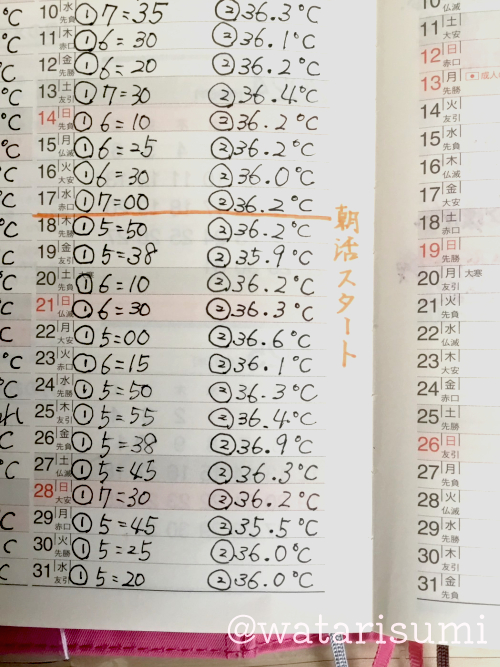 10 水 先負 ①7=35 ②36.3℃
11 木 赤口 ①6=30 ②36.1℃
12 金 先勝 ①6=20 ②36.2℃
13 土 友引 ①7=30 ②36.4℃
14 日 先負 ①6=10 ②36.2℃
15 月 仏滅 ①6=25 ②36.2℃
16 火 大安 ①6=30 ②36.0℃
17 水 赤口 ①7=00 ②36.2℃
朝活スタート
18 木 先勝 ①5=50 ②36.2℃
19 金 友引 ①5=38 ②35.9℃
20 土 大寒 先負 ①6=10 ②36.2℃
21 日 仏滅 ①6=30 ②36.3℃
22 月 大安 ①5=00 ②36.6℃
23 火 赤口 ①6=15 ②36.1℃
24 水 先勝 ①5=50 ②36.3℃
25 木 友引 ①5=55 ②36.4℃
26 金 先負 ①5=38 ②36.9℃
27 土 仏滅 ①5=45 ②36.3℃
28 日 大安 ①7=30 ②36.2℃
29 月 赤口 ①5=45 ②35.5℃
30 火 先勝 ①5=25 ②36.0℃
31 水 友引 ①5=20 ②36.0℃
11 土 大安
12 日 赤口
13 月 先勝 成人
14 火 友引
15 水 先負
16 木 仏滅
17 金 大安
18 土 赤口
19 日 先勝
20 月 友引 大寒
21 火 先負
22 水 仏滅
23 木 大安
24 金 赤口
25 土 先勝
26 日 友引
27 月 先負
28 火 仏滅
29 水 大安
30 木 赤口
31 金 先負
@watarisumi